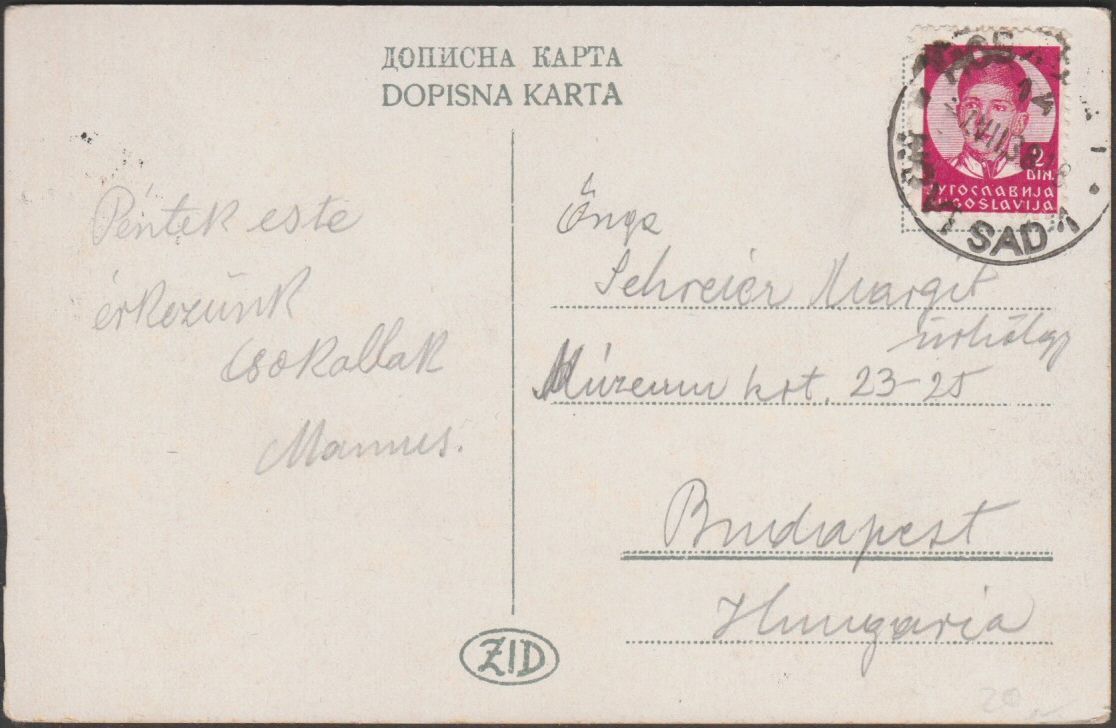 ДОПИСНА КАРТА
DOPISNA KARTA
2
DIN.
ЈУГОСЛАВИЈА
JUGOSLAVIJA
NOVI SAD 1
Péntek este
érkezünk
csokollak
Őnga
Schreier Margit
úrhölgy
Múzeum krt. 23-25
Budapest
Hungaria
ZID
20